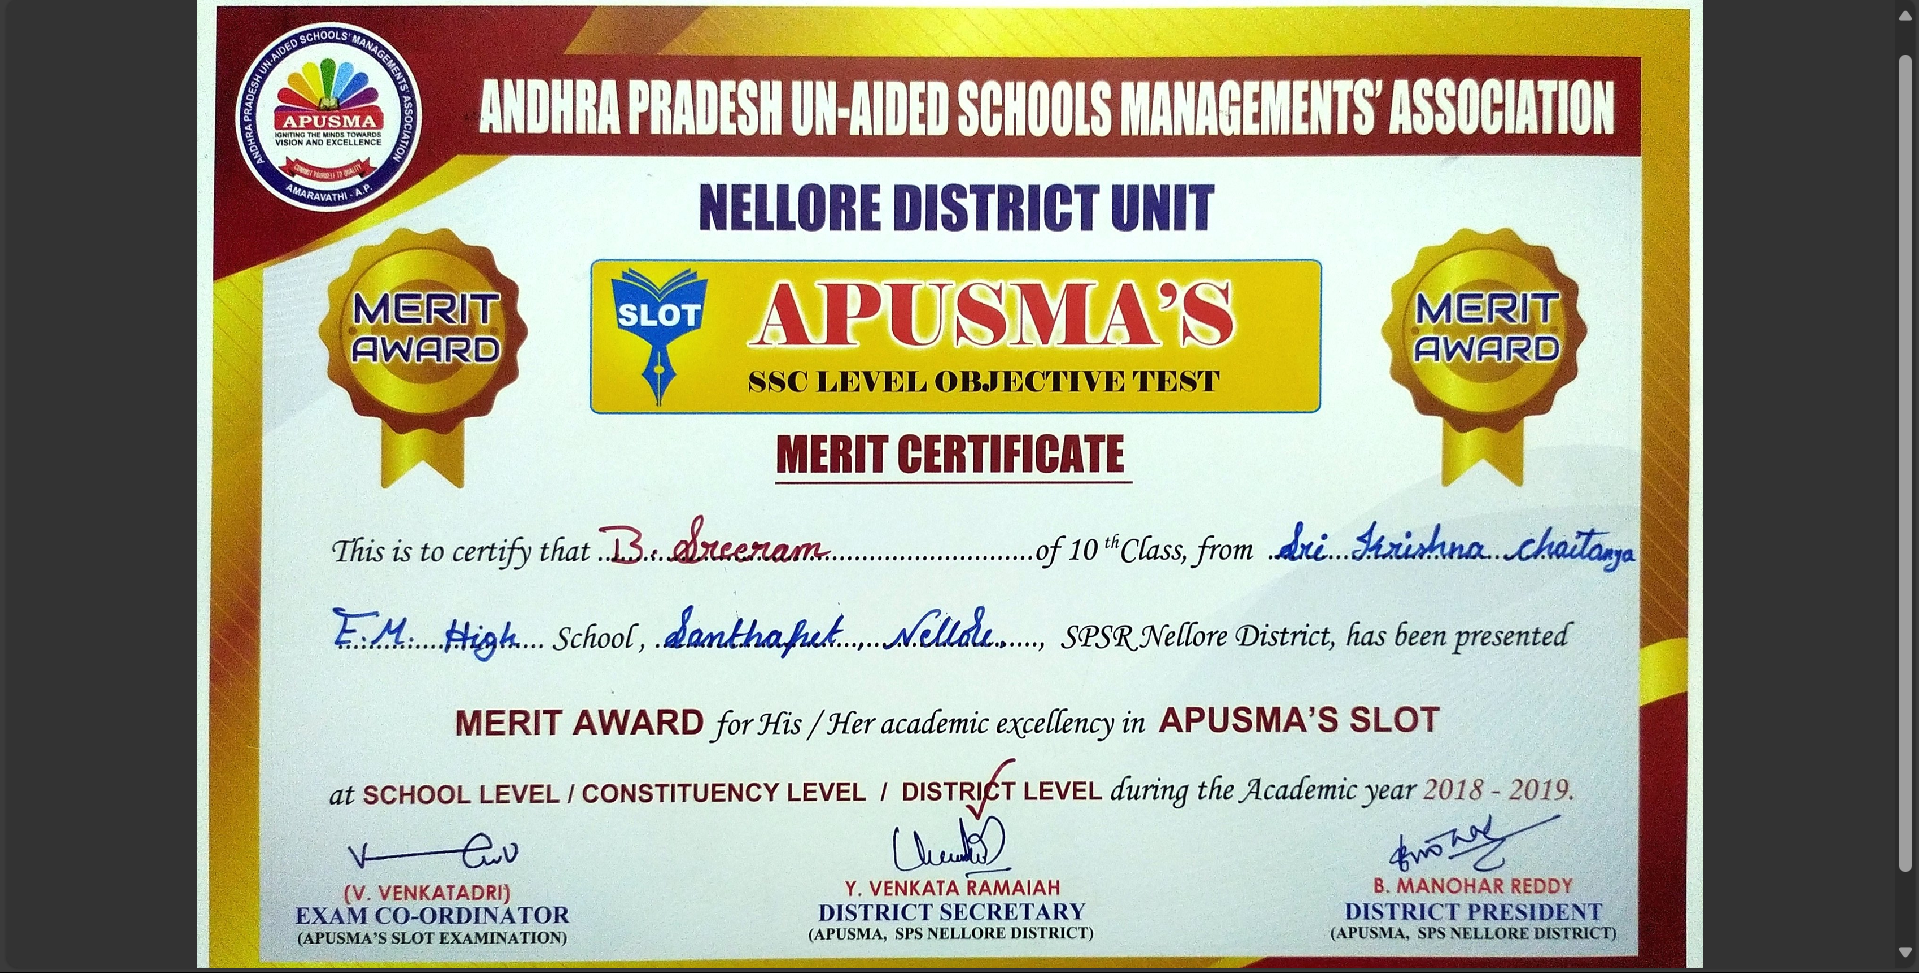 ANDHRA PRADESH UN-AIDED SCHOOLS' MANAGEMENTS' ASSOCIATION
APUSMA
IGNITING THE MINDS TOWARDS
VISION AND EXCELLENCE
COMMIT YOURSELF TO QUALITY
AMARAVATHI - A.P.
ANDHRA PRADESH UN-AIDED SCHOOLS MANAGEMENTS' ASSOCIATION
NELLORE DISTRICT UNIT
MERIT
AWARD
SLOT
APUSMA'S
SSC LEVEL OBJECTIVE TEST
MERIT
AWARD
MERIT CERTIFICATE
This is to certify that B. Sreeram of 10 th Class, from Sri Krishna Chaitanya
E.M. High School, Santhapet, Nellore, SPSR Nellore District, has been presented
MERIT AWARD for His / Her academic excellency in APUSMA'S SLOT
at SCHOOL LEVEL / CONSTITUENCY LEVEL / DISTRICT LEVEL during the Academic year 2018 - 2019.
(V. VENKATADRI)
EXAM CO-ORDINATOR
(APUSMA'S SLOT EXAMINATION)
Y. VENKATA RAMAIAH
DISTRICT SECRETARY
(APUSMA, SPS NELLORE DISTRICT)
B. MANOHAR REDDY
DISTRICT PRESIDENT
(APUSMA, SPS NELLORE DISTRICT)